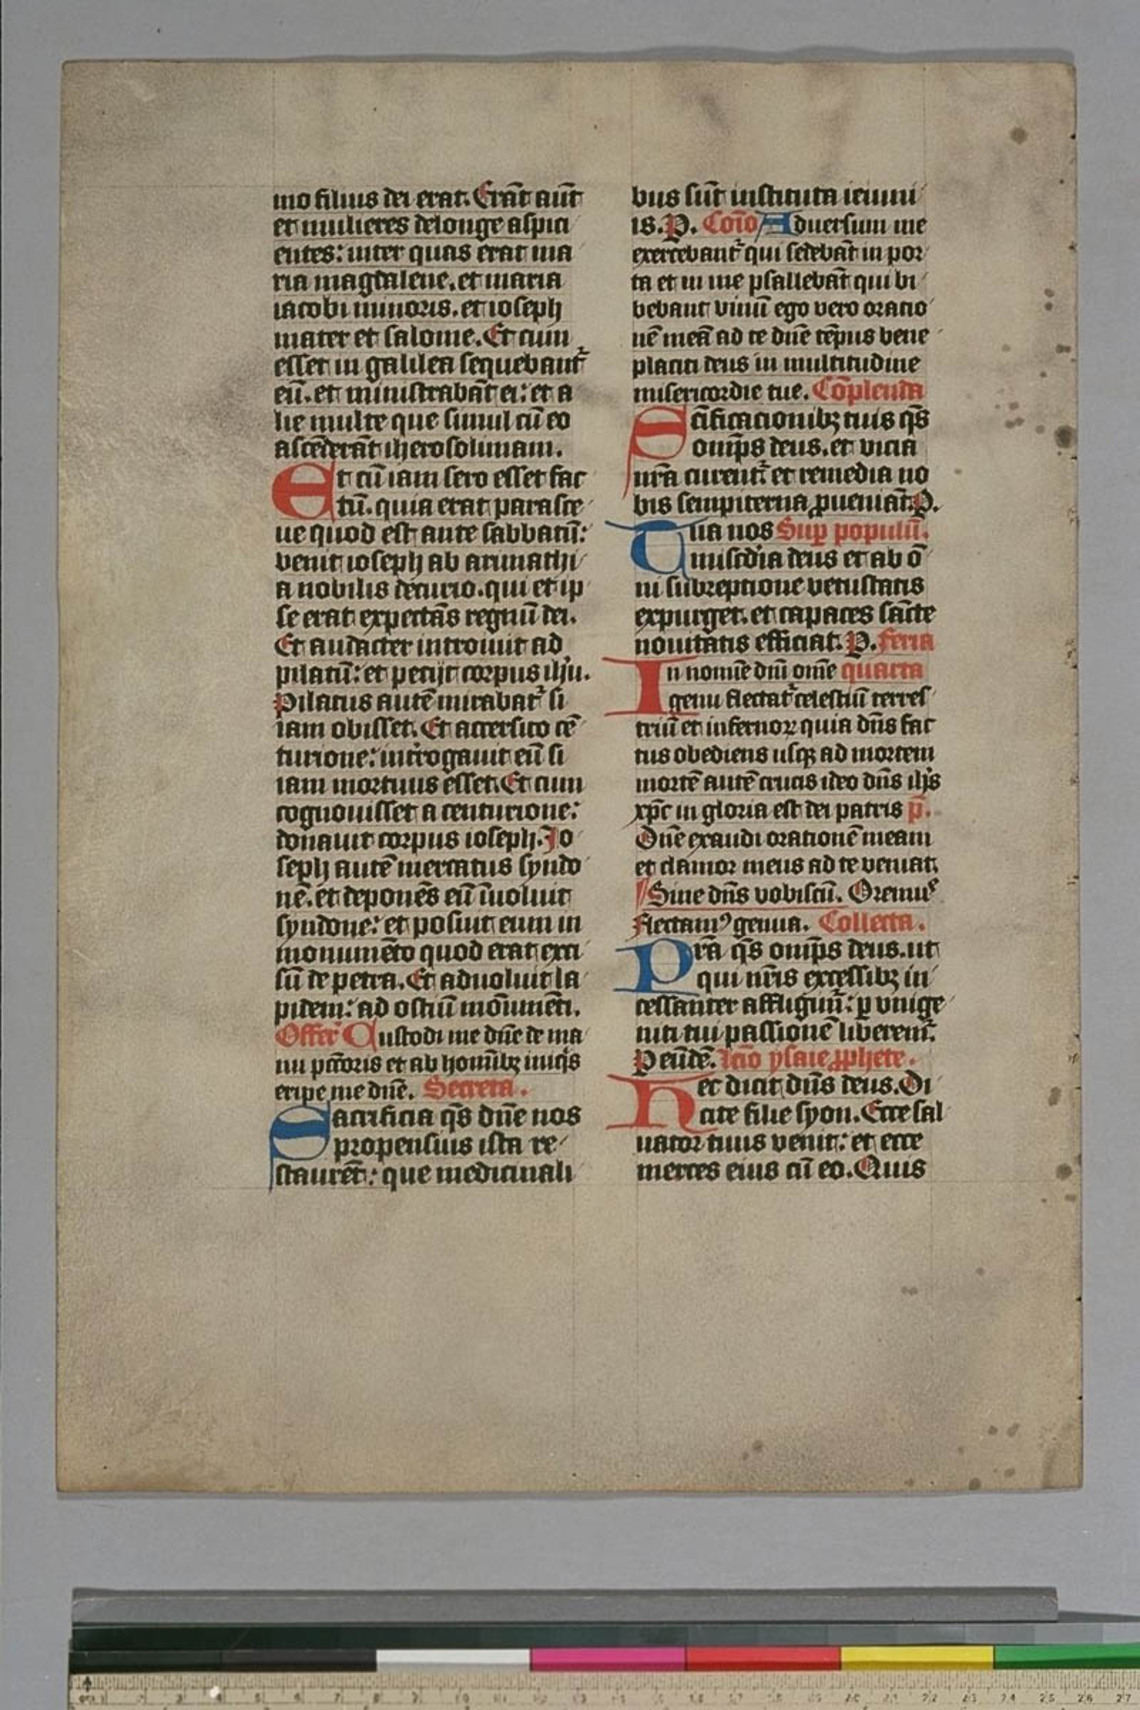 mo filius dei erat. Erāt aūt
et mulieres delonge aspici
entes: inter quas erat ma
ria magdalene. et maria
iacobi minoris. et ioseph
mater et salome. Et cum
esset in galilea sequebant᷑
eū. et ministrabāt ei: et a
lie multe que simul cū eo
ascēderāt iherosolimam.
Et cū iam sero esset fac
tū. quia erat parasce
ue quod est ante sabbatū:
venit ioseph ab arimathi
a nobilis decurio. qui et ip
se erat expectās regnū dei.
Et audacter introiuit ad
pilatū: et petijt corpus ihū.
Pilatus autē mirabat᷑ si
iam obisset. Et accersito cē
turione: int̄rogauit eū si
iam mortuus esset. Et cum
cognouisset a centurione:
donauit corpus ioseph. Jo
seph autē mercatus syndo
nē. et deponēs eū īuoluit
syndone: et posuit eum in
monumēto quod erat exci
sū de petra. Et aduoluit la
pidem: ad ostiū monumēti.
Offer᷑ Custodi me dn̄e de ma
nu pctōris et ab homībꝫ iniq̄s
eripe me dn̄e. Secreta.
Sacrificia qs̄ dn̄e nos
propensius ista re
staurēt: que medicinali
bus sūt instituta ieiuni
is. P. Cōio Aduersum me
exercebant᷑ qui sedebāt in por
ta et in me psallebāt qui bi
bebant vinū ego vero oratio
nē meā ad te dn̄e tēpus bene
placiti deus in multitudine
misericordie tue. Cōplenda
Sc̄ificacionibꝫ tuis qs̄
omīps deus. et vicia
nr̄a curent᷑ et remedia no
bis sempiterna ꝓueniāt. P.
Tua nos Suꝑ populū.
mīscdīa deus et ab ō
ni subreptione vetustatis
expurget. et capaces sāncte
nouitatis efficiat. P. Feria
In nomīe dn̄i om̄e quarta
genu flectat᷑ celestiū terres
triū et infernoꝝ quia dn̄s fac
tus obediens usqꝫ ad mortem
mortē autē crucis ideo dn̄s ihs̄
xp̄c in gloria est dei patris p̄.
Dn̄e exaudi orationē meam
et clamor meus ad te veniat.
Sine dn̄s vobiscū. Oremus
flectamꝰ genua. Collecta.
Pr̄a qs̄ omīps deus. ut
qui nr̄is excessibꝫ in
cessanter affligim᷑: ꝑ vnige
niti tui passionē liberem᷑.
P eūdē. lc̄io ysaie ꝓphete.
Hec dicit dn̄s deus. Di
cite filie syon. Ecce sal
uator tuus venit: et ecce
merces eius cū eo. Quis